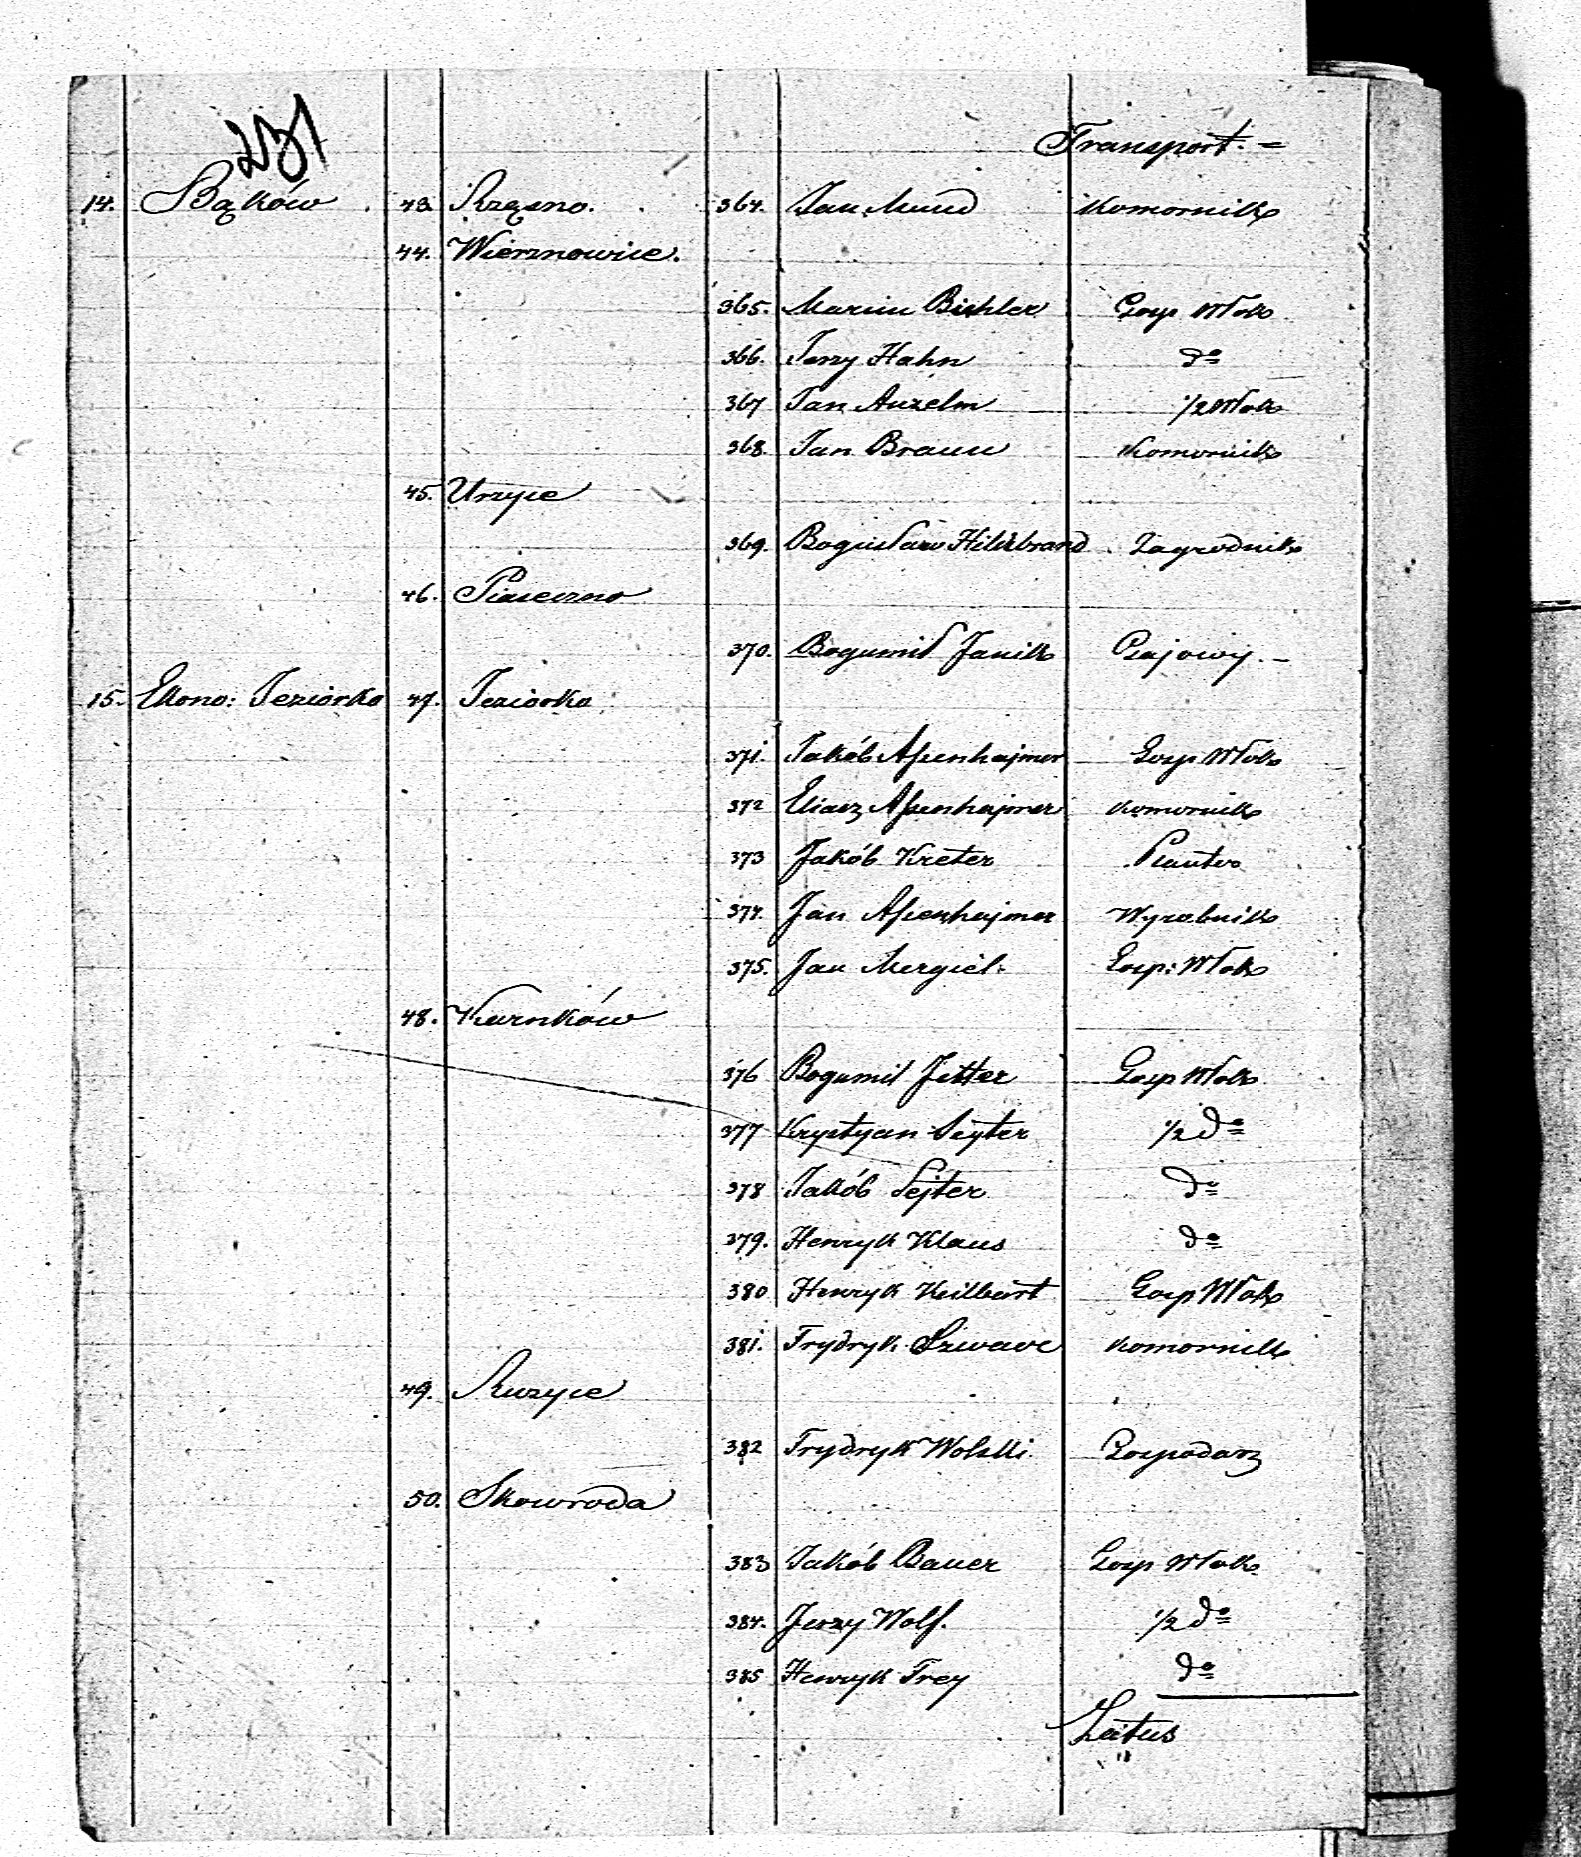 231
Transport. =
14. Bąków 43. Rząsno. 364. Jan Mund Komornik
44. Wierznowice.
365. Marcin Bichler Gosp Włok
366. Jerzy Hahn do
367 Jan Anzelm 1/2 Włok
368. Jan Braun Komornik
45. Urzyce
369. Bogusław Hildebrand Zagrodnik
46. Piaseczno
370. Bogumił Janik Gajowy. –
15. Ekono: Jeziorko 47. Jeziorko
371. Jakób Assenhajmer Gosp Włok
372 Eliasz Assenhajmer Komornik
373 Jakób Kreter
374. Jan Assenhajmer Wyrobnik
375. Jan Mergiel. Gosp: Włok
48. Kurnków
376 Bogumił Jetter Gosp Włok
377 Krystyan Seyter 1/2 do
378 Jakób Sejter do
379. Henryk Klaus do
380 Henryk Keilbart Gosp Włok
381. Frydryk Szwawe Komornik
49. Ruzyce
382 Frydryk Wolski Gospodarz
50. Skowroda
383 Jakób Bauer Gosp Włok
384. Jerzy Wolf. 1/2 do
385 Henryk Frey do
Latus